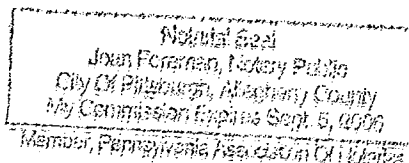 Notarial Seal
Joan Foreman, Notary Public
City Of Pittsburgh, Allegheny County
My Commission Expires Sept. 5, 2006
Member, Pennsylvania Association Of Notaries